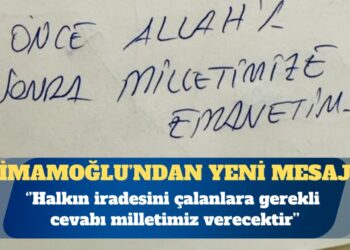 ÖNCE ALLAH'A
SONRA MİLLETİMİZE
EMANETİM..
İMAMOĞLU'NDAN YENİ MESAJ
“Halkın iradesini çalanlara gerekli
cevabı milletimiz verecektir”